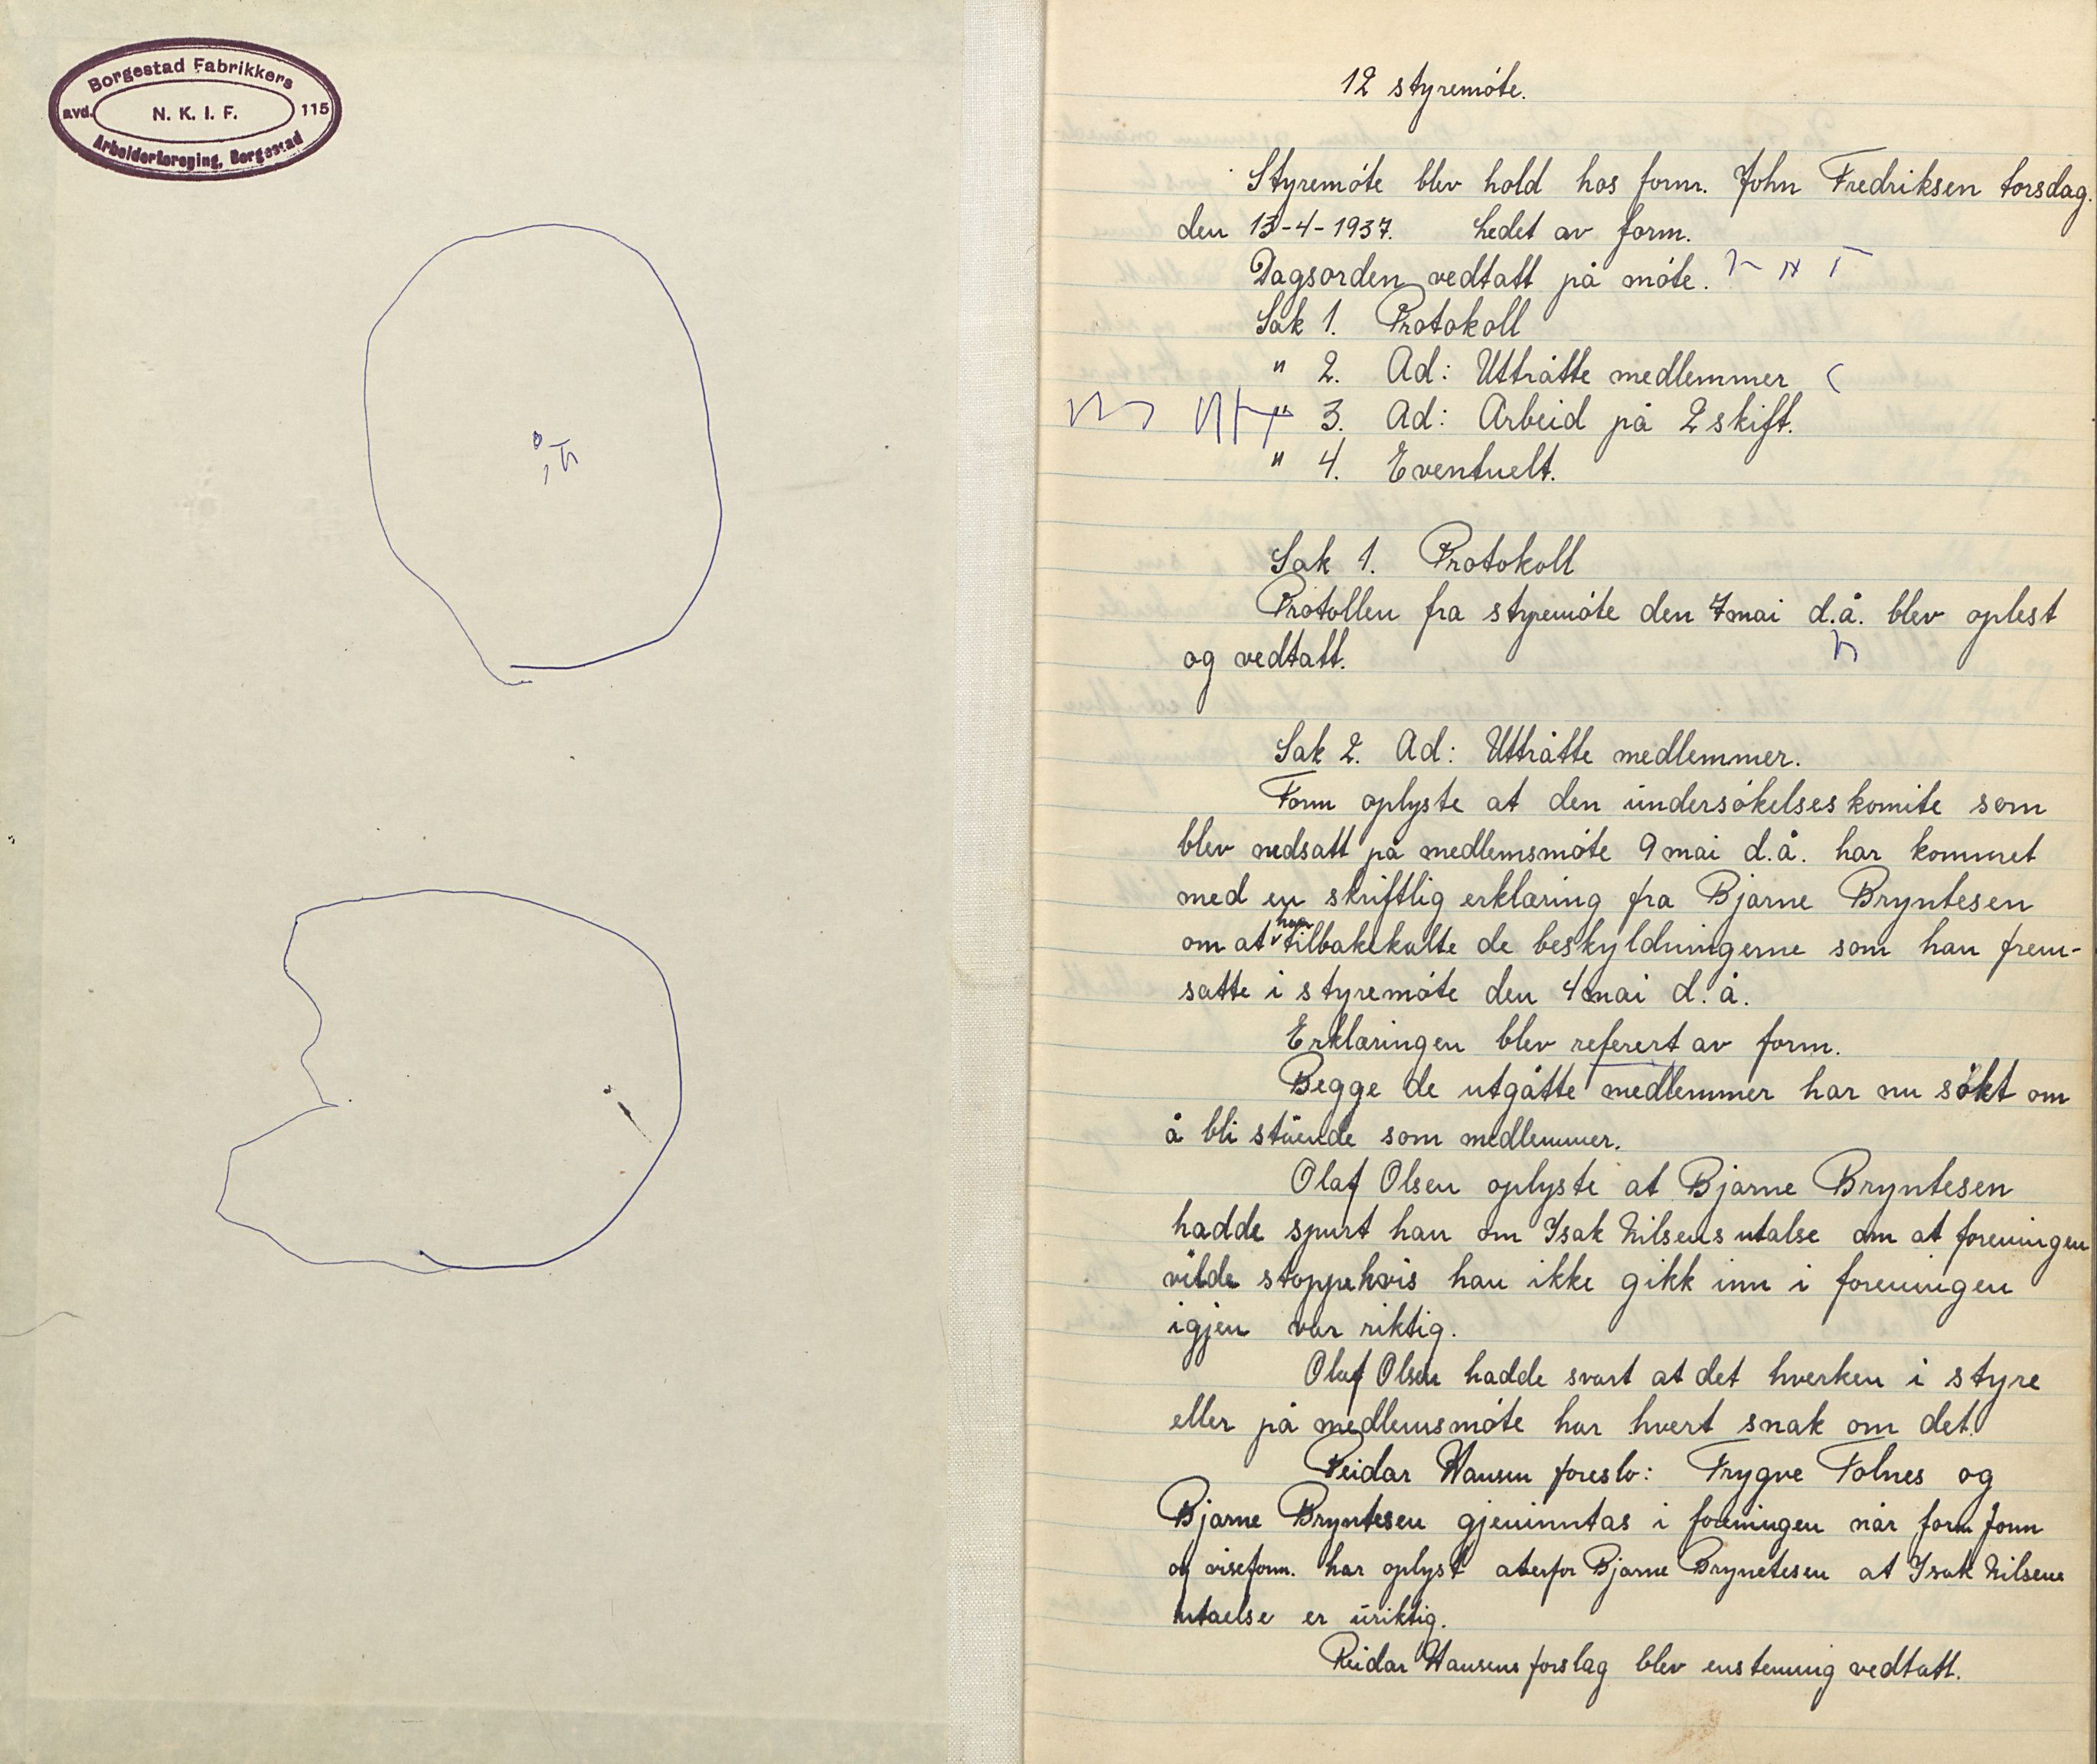 Borgestad Fabrikkers
avd. N. K. I. F. 115
Arbeiderforening, Borgestad
12 styremöte.
Styremöte blev hold hos form. John Fredriksen torsdag.
den 13-4-1937. Ledet av form.
Dagsorden vedtatt på möte.
Sak 1. Protokoll
" 2. Ad: Uttråtte medlemmer
" 3. Ad: Arbeid på 2 skift.
" 4. Eventuelt.
Sak 1. Protokoll
Protollen fra styremöte den 7 mai d.å. blev oplest
og vedtatt.
Sak 2. Ad: Uttråtte medlemmer.
Form oplyste at den undersökelseskomite som
blev nedsatt på medlemsmöte 9 mai d.å. har kommet
med en skriftlig erklæring fra Bjarne Bryntesen
om at han tilbakekalte de beskyldningerne som han frem-
satte i styremöte den 4 mai d.å.
Erklæringen blev referert av form.
Begge de utgåtte medlemmer har nu sökt om
å bli stående som medlemmer.
Olaf Olsen oplyste at Bjarne Bryntesen
hadde spurt han om Isak Nilsens utalse om at foreningen
vilde stoppe hvis han ikke gikk inn i foreningen
igjen var riktig.
Olaf Olsen hadde svart at det hverken i styre
eller på medlemsmöte har hvert snak om det.
Reidar Hansen foreslo: Trygve Tolnes og
Bjarne Bryntesen gjeninntas i foreningen når form
og viseform. har oplyst Bjarne Brynetesen at Isak Nilsens
utaelse er uriktig.
Reidar Hansens forslag blev enstemmig vedtatt.